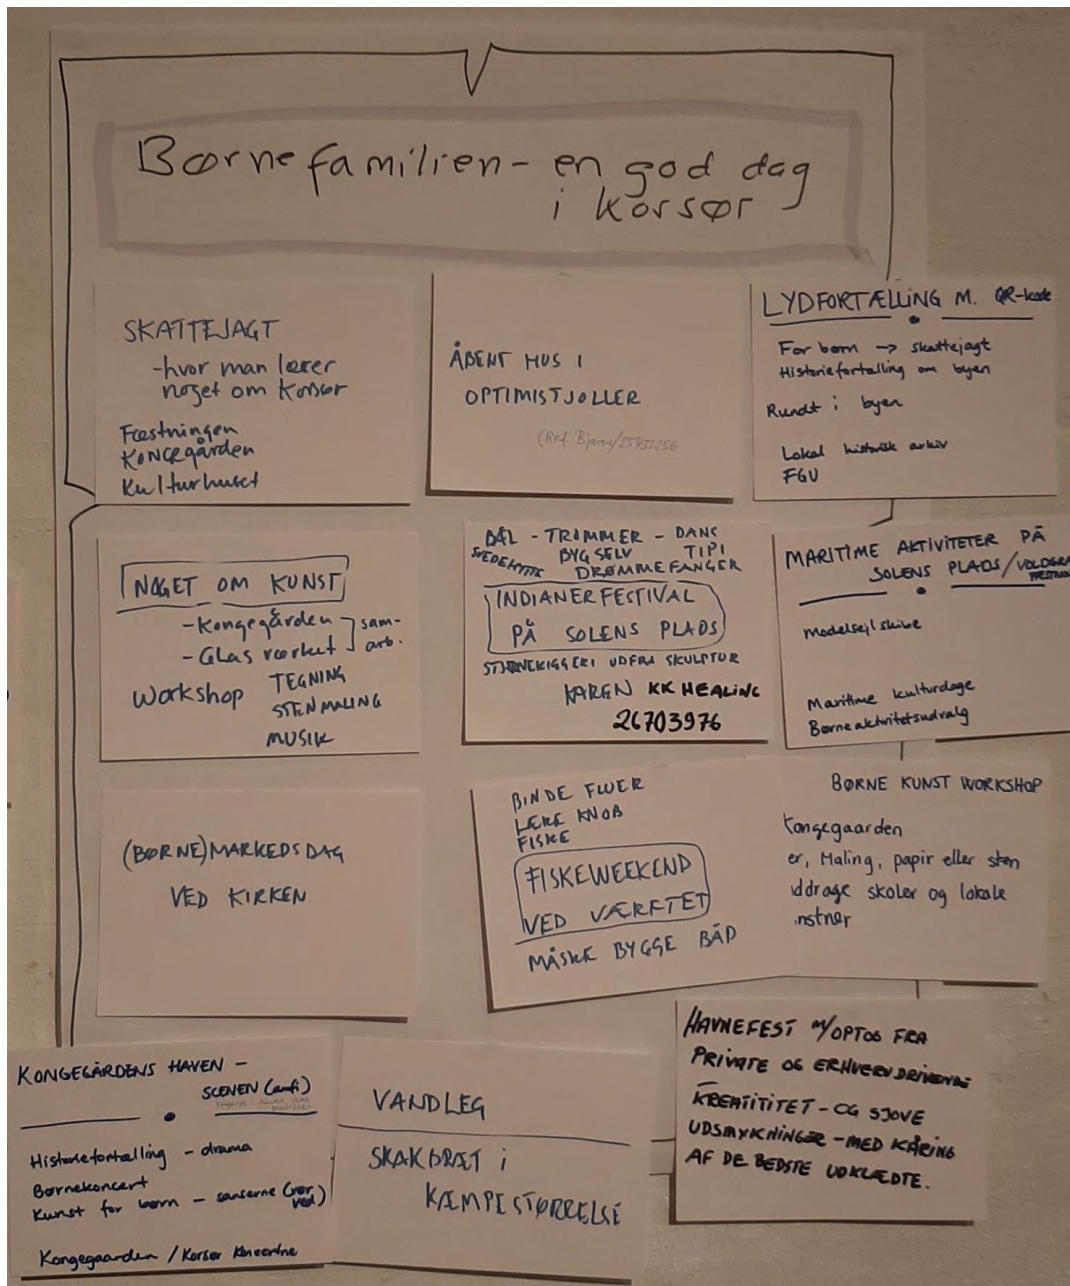 Børnefamilien - en god dag
i Korsør
SKATTEJAGT
-hvor man lærer
noget om Korsør
Fæstningen
KONGEgården
Kulturhuset
ÅBENT HUS I
OPTIMISTJOLLER
(Ref. Bjarne/
LYDFORTÆLLING M. QR-kode
For børn -> skattejagt
Historiefortælling om byen
Rundt i byen
Lokal historisk arkiv
FGU
NOGET OM KUNST
- Kongegården
- Glas værket
sam-
arb.
Workshop
TEGNING
STENMALING
MUSIK
BÅL - TROMMER - DANS
SVEDEHYTTE BYG SELV TIPI
DRØMMEFANGER
INDIANERFESTIVAL
PÅ SOLENS PLADS
STJERNEKIGGERI UDFRA SKULPTUR
KAREN KK HEALING
26703976
MARITIME AKTIVITETER PÅ
SOLENS PLADS/
Modelsejlskibe
Maritime kulturdage
Børneaktivitetsudvalg
(BØRNE)MARKEDSDAG
VED KIRKEN
BINDE FLUER
LÆRE KNOB
FISKE
FISKEWEEKEND
VED VÆRFTET
MÅSKE BYGGE BÅD
BØRNE KUNST WORKSHOP
Kongegaarden
er, Maling, papir eller sten
ddrage skoler og lokale
nstner
KONGEGÅRDENS HAVEN -
SCENEN (amfi)
Historiefortælling - drama
Børnekoncert
Kunst for børn - sanserne (rør ved)
Kongegaarden / Korsør Koncertne
VANDLEG
SKAKBRÆT i
KÆMPESTØRRELSE
HAVNEFEST M/OPTOG FRA
PRIVATE OG ERHVERVSDRIVENDE
-
KREATITITET - OG SJOVE
UDSMYKNINGER - MED KÅRING
AF DE BEDSTE UDKLÆDTE.